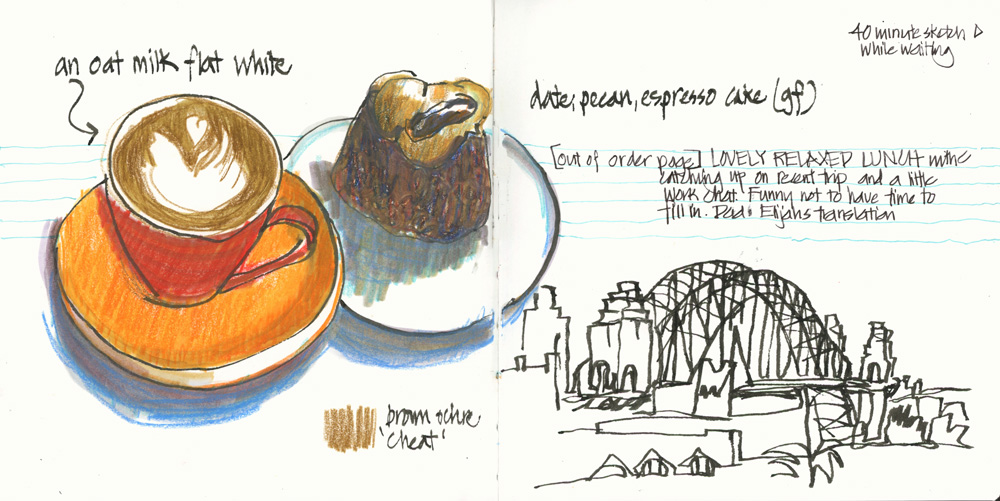 an oat milk flat white
brown ochre
'cheat'
40 minute sketch
while waiting
date, pecan, espresso cake (gf)
[out of order page] LOVELY RELAXED LUNCH
catching up on recent trip and a little
work chat. Funny not to have time to
fill in. Dad: Elijah's translation